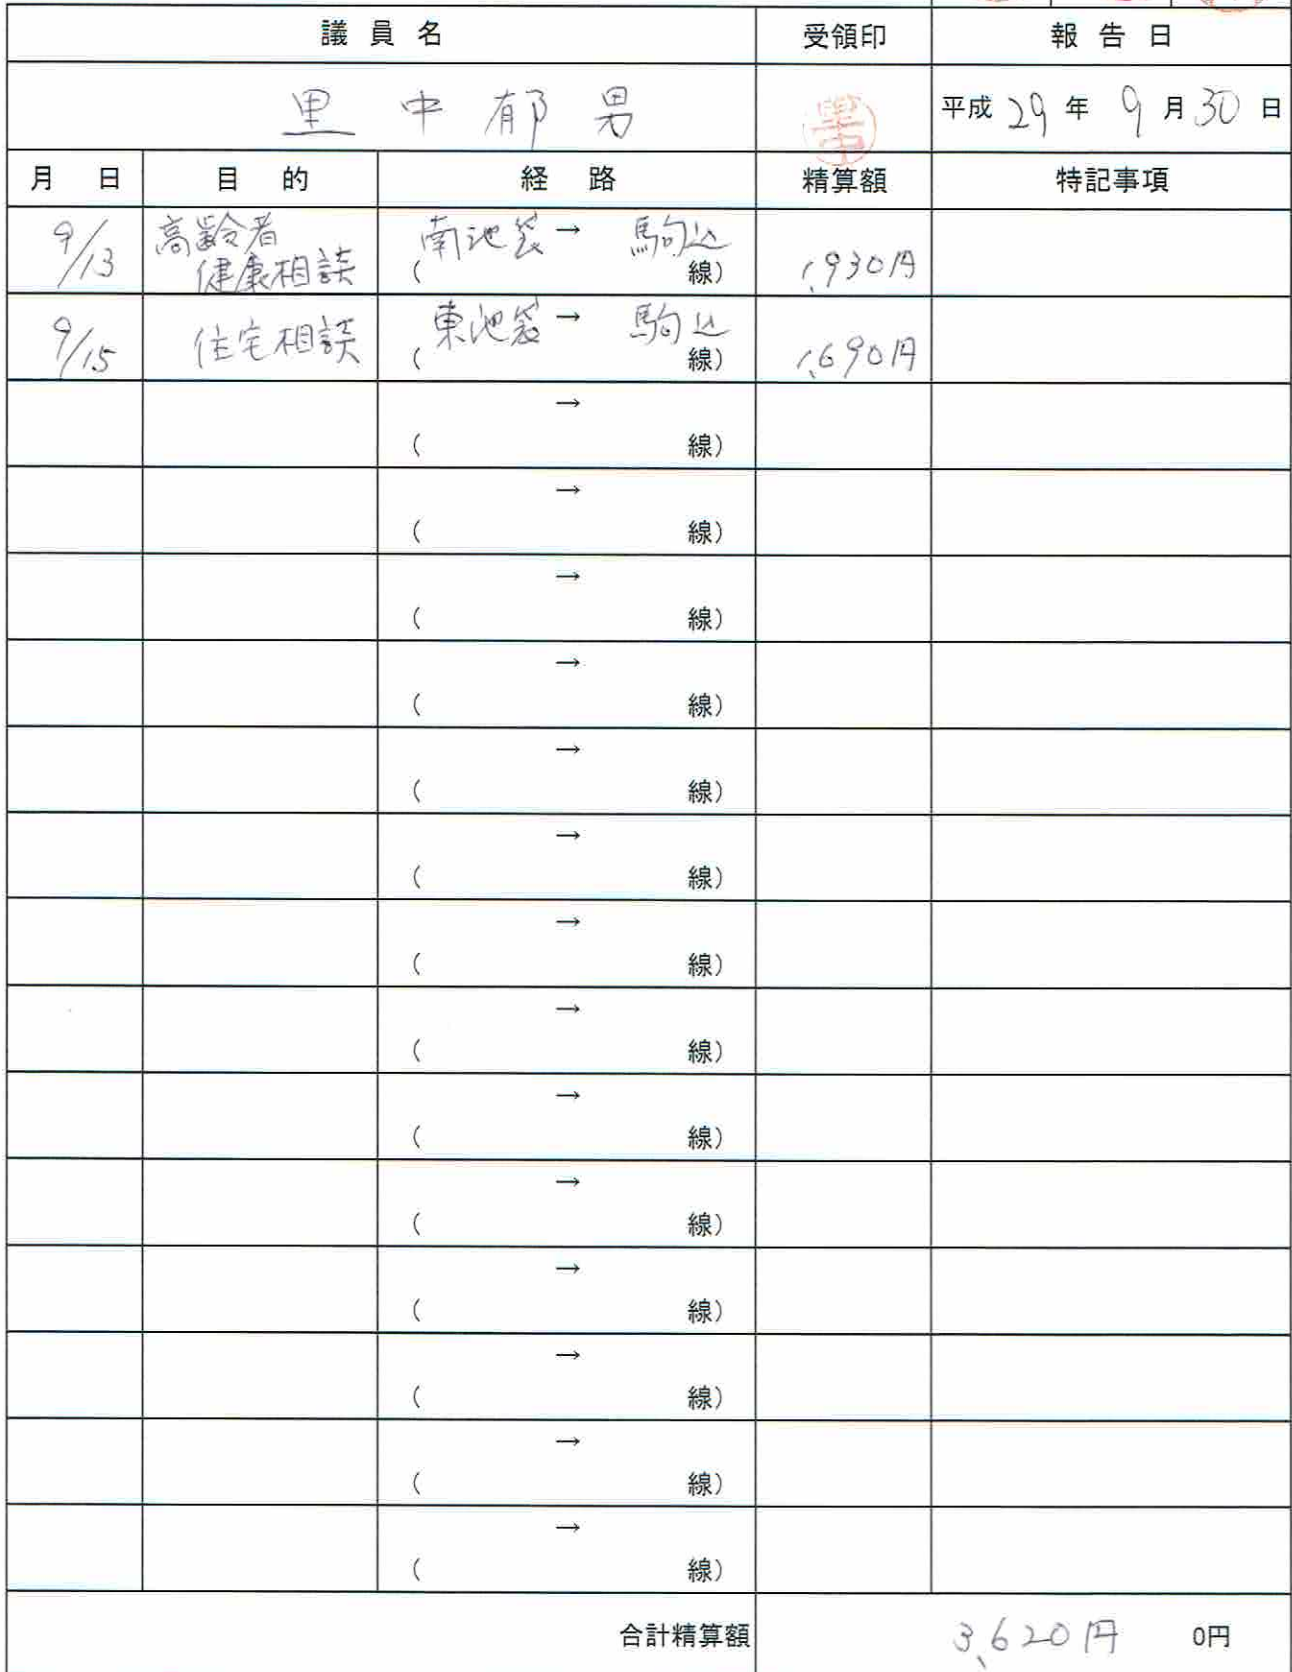 議員名 受領印 報告日
里中郁男 里中 平成29年9月30日
月日 目的 経路 精算額 特記事項
9/13 高齢者 南池袋→ 駒込
健康相談 ( 線) 1,930円
9/15 住宅相談 東池袋→ 駒込
( 線) 1,690円
→
( 線)
→
( 線)
→
( 線)
→
( 線)
→
( 線)
→
( 線)
→
( 線)
→
( 線)
→
( 線)
→
( 線)
→
( 線)
→
( 線)
→
( 線)
→
( 線)
合計精算額 3,620円 0円